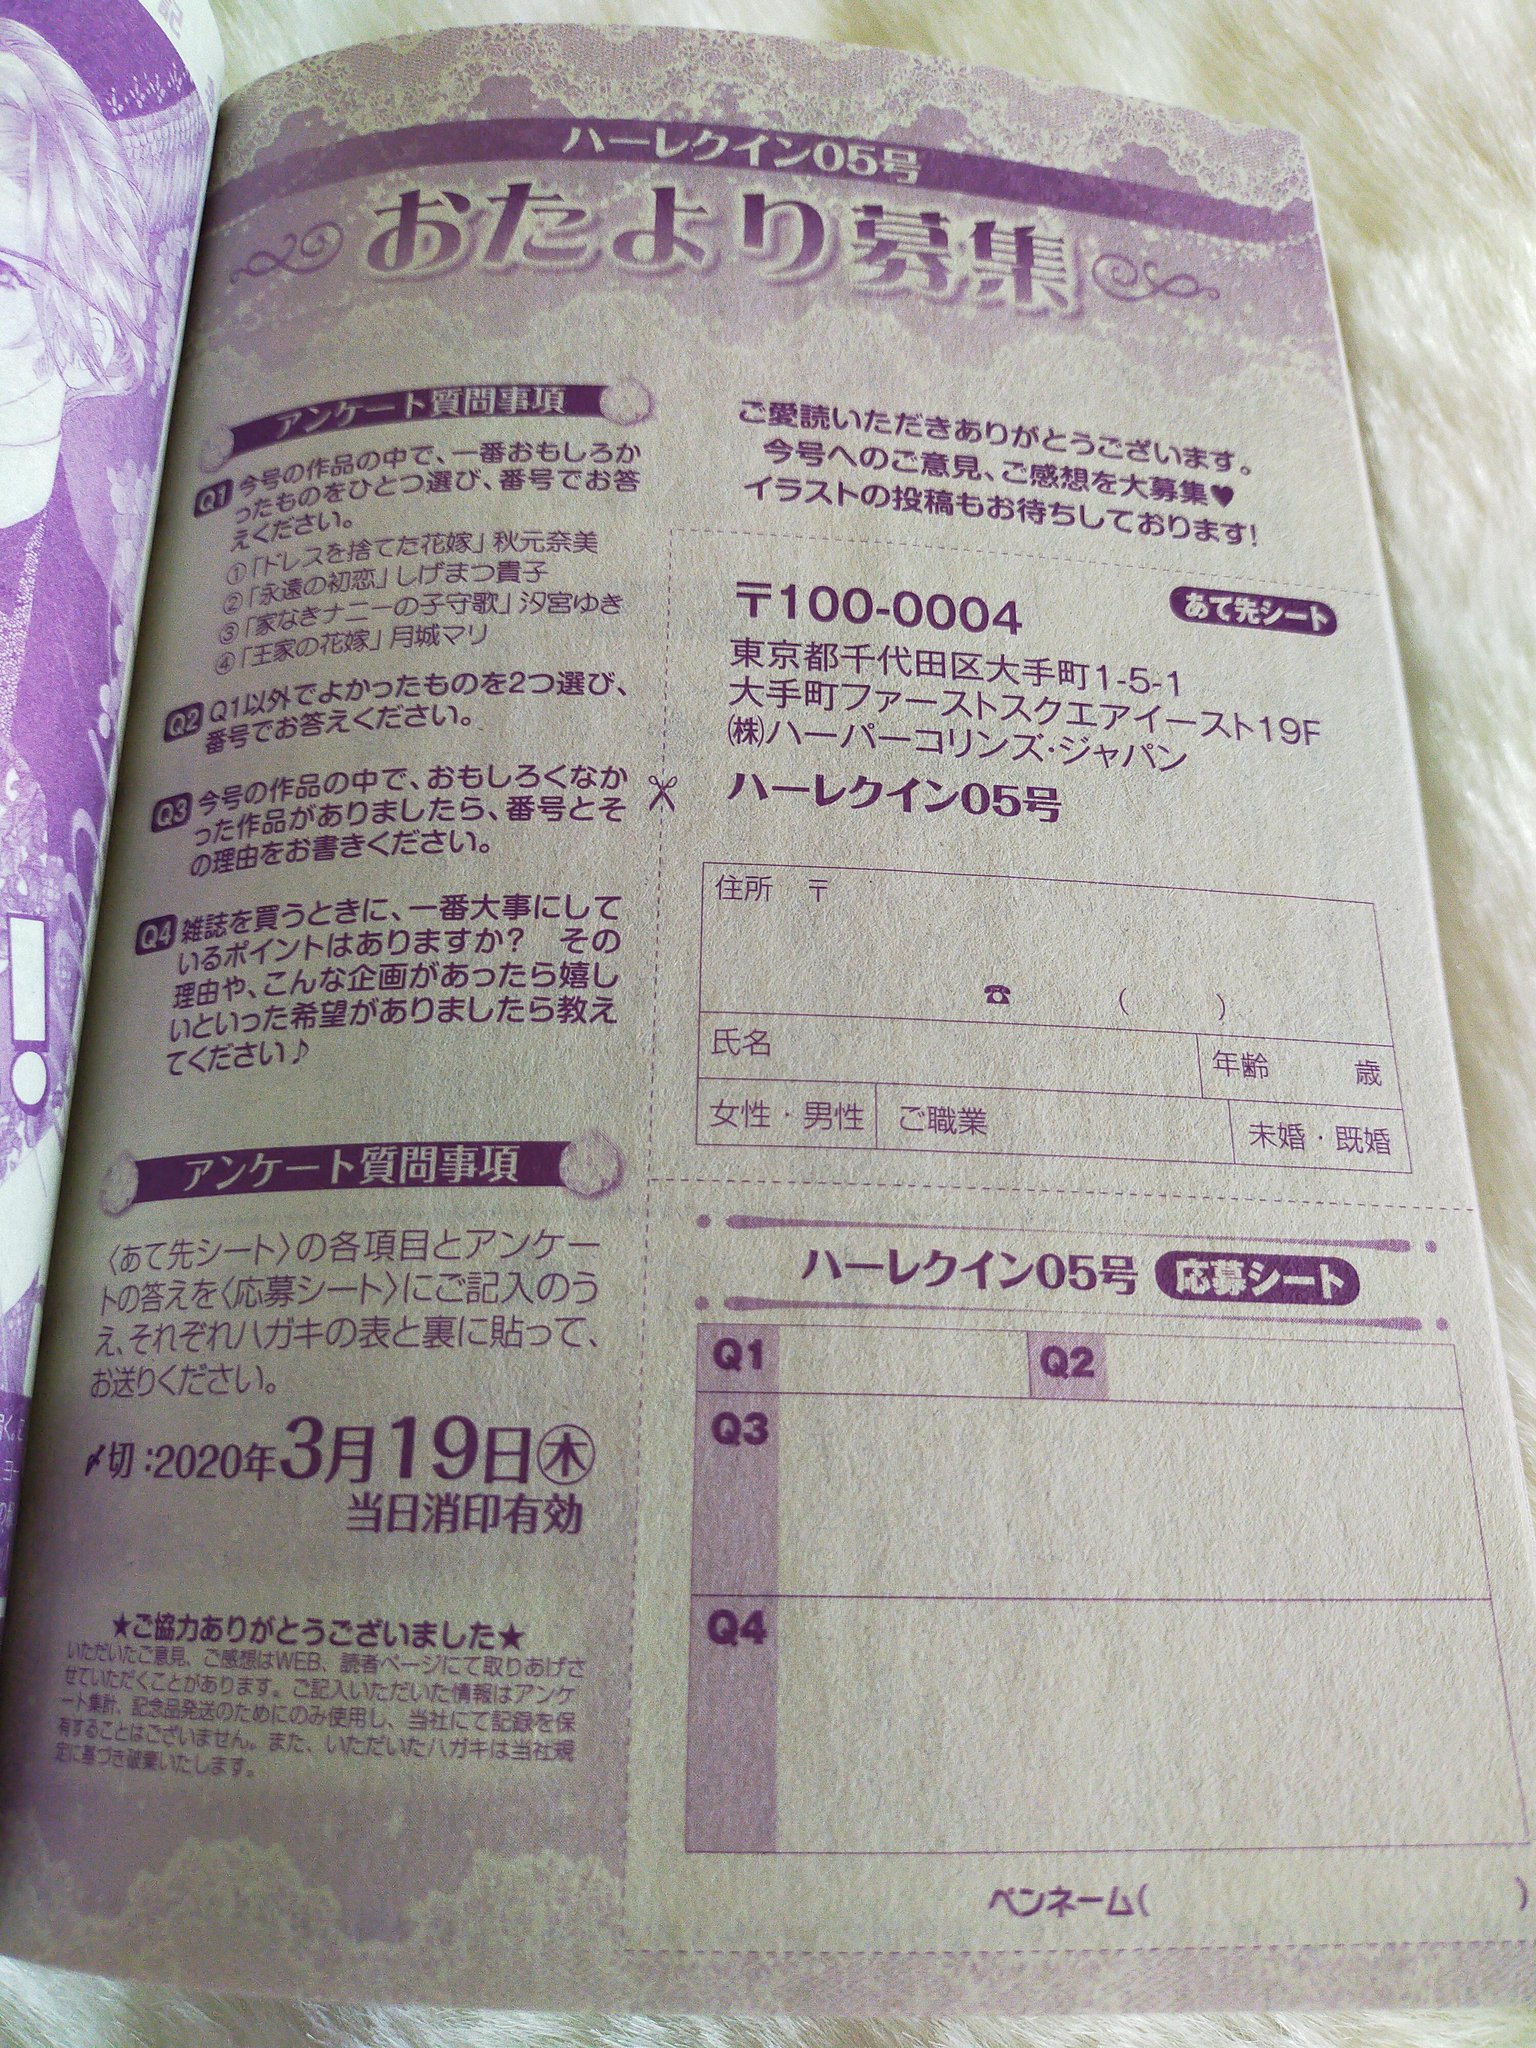 ハーレクイン05号
おたより募集
アンケート質問事項
Q1 今号の作品の中で、一番おもしろか
ったものをひとつ選び、番号でお答
えください。
①「ドレスを捨てた花嫁」秋元奈美
②「永遠の初恋」しげまつ貴子
③「家なきナニーの子守歌」汐宮ゆき
④「王家の花嫁」月城マリ
Q2 Q1以外でよかったものを2つ選び、
番号でお答えください。
Q3 今号の作品の中で、おもしろくなか
った作品がありましたら、番号とそ
の理由をお書きください。
Q4 雑誌を買うときに、一番大事にして
いるポイントはありますか？ その
理由や、こんな企画があったら嬉し
いといった希望がありましたら教え
てください♪
アンケート質問事項
〈あて先シート〉の各項目とアンケー
トの答えを〈応募シート〉にご記入のう
え、それぞれハガキの表と裏に貼って、
お送りください。
〆切：2020年3月19日㊍
当日消印有効
★ご協力ありがとうございました★
いただいたご意見、ご感想はWEB、読者ページにて取りあげさ
せていただくことがあります。ご記入いただいた情報はアンケ
ート集計、記念品発送のためにのみ使用し、当社にて記録を保
有することはございません。また、いただいたハガキは当社規
定に基づき破棄いたします。
ご愛読いただきありがとうございます。
今号へのご意見、ご感想を大募集♥
イラストの投稿もお待ちしております！
あて先シート
〒100-0004
東京都千代田区大手町1-5-1
大手町ファーストスクエアイースト19F
㈱ハーパーコリンズ・ジャパン
ハーレクイン05号
住所 〒
☎ （ ）
氏名 年齢 歳
女性・男性 ご職業 未婚・既婚
ハーレクイン05号 応募シート
Q1 Q2
Q3
Q4
ペンネーム（ ）